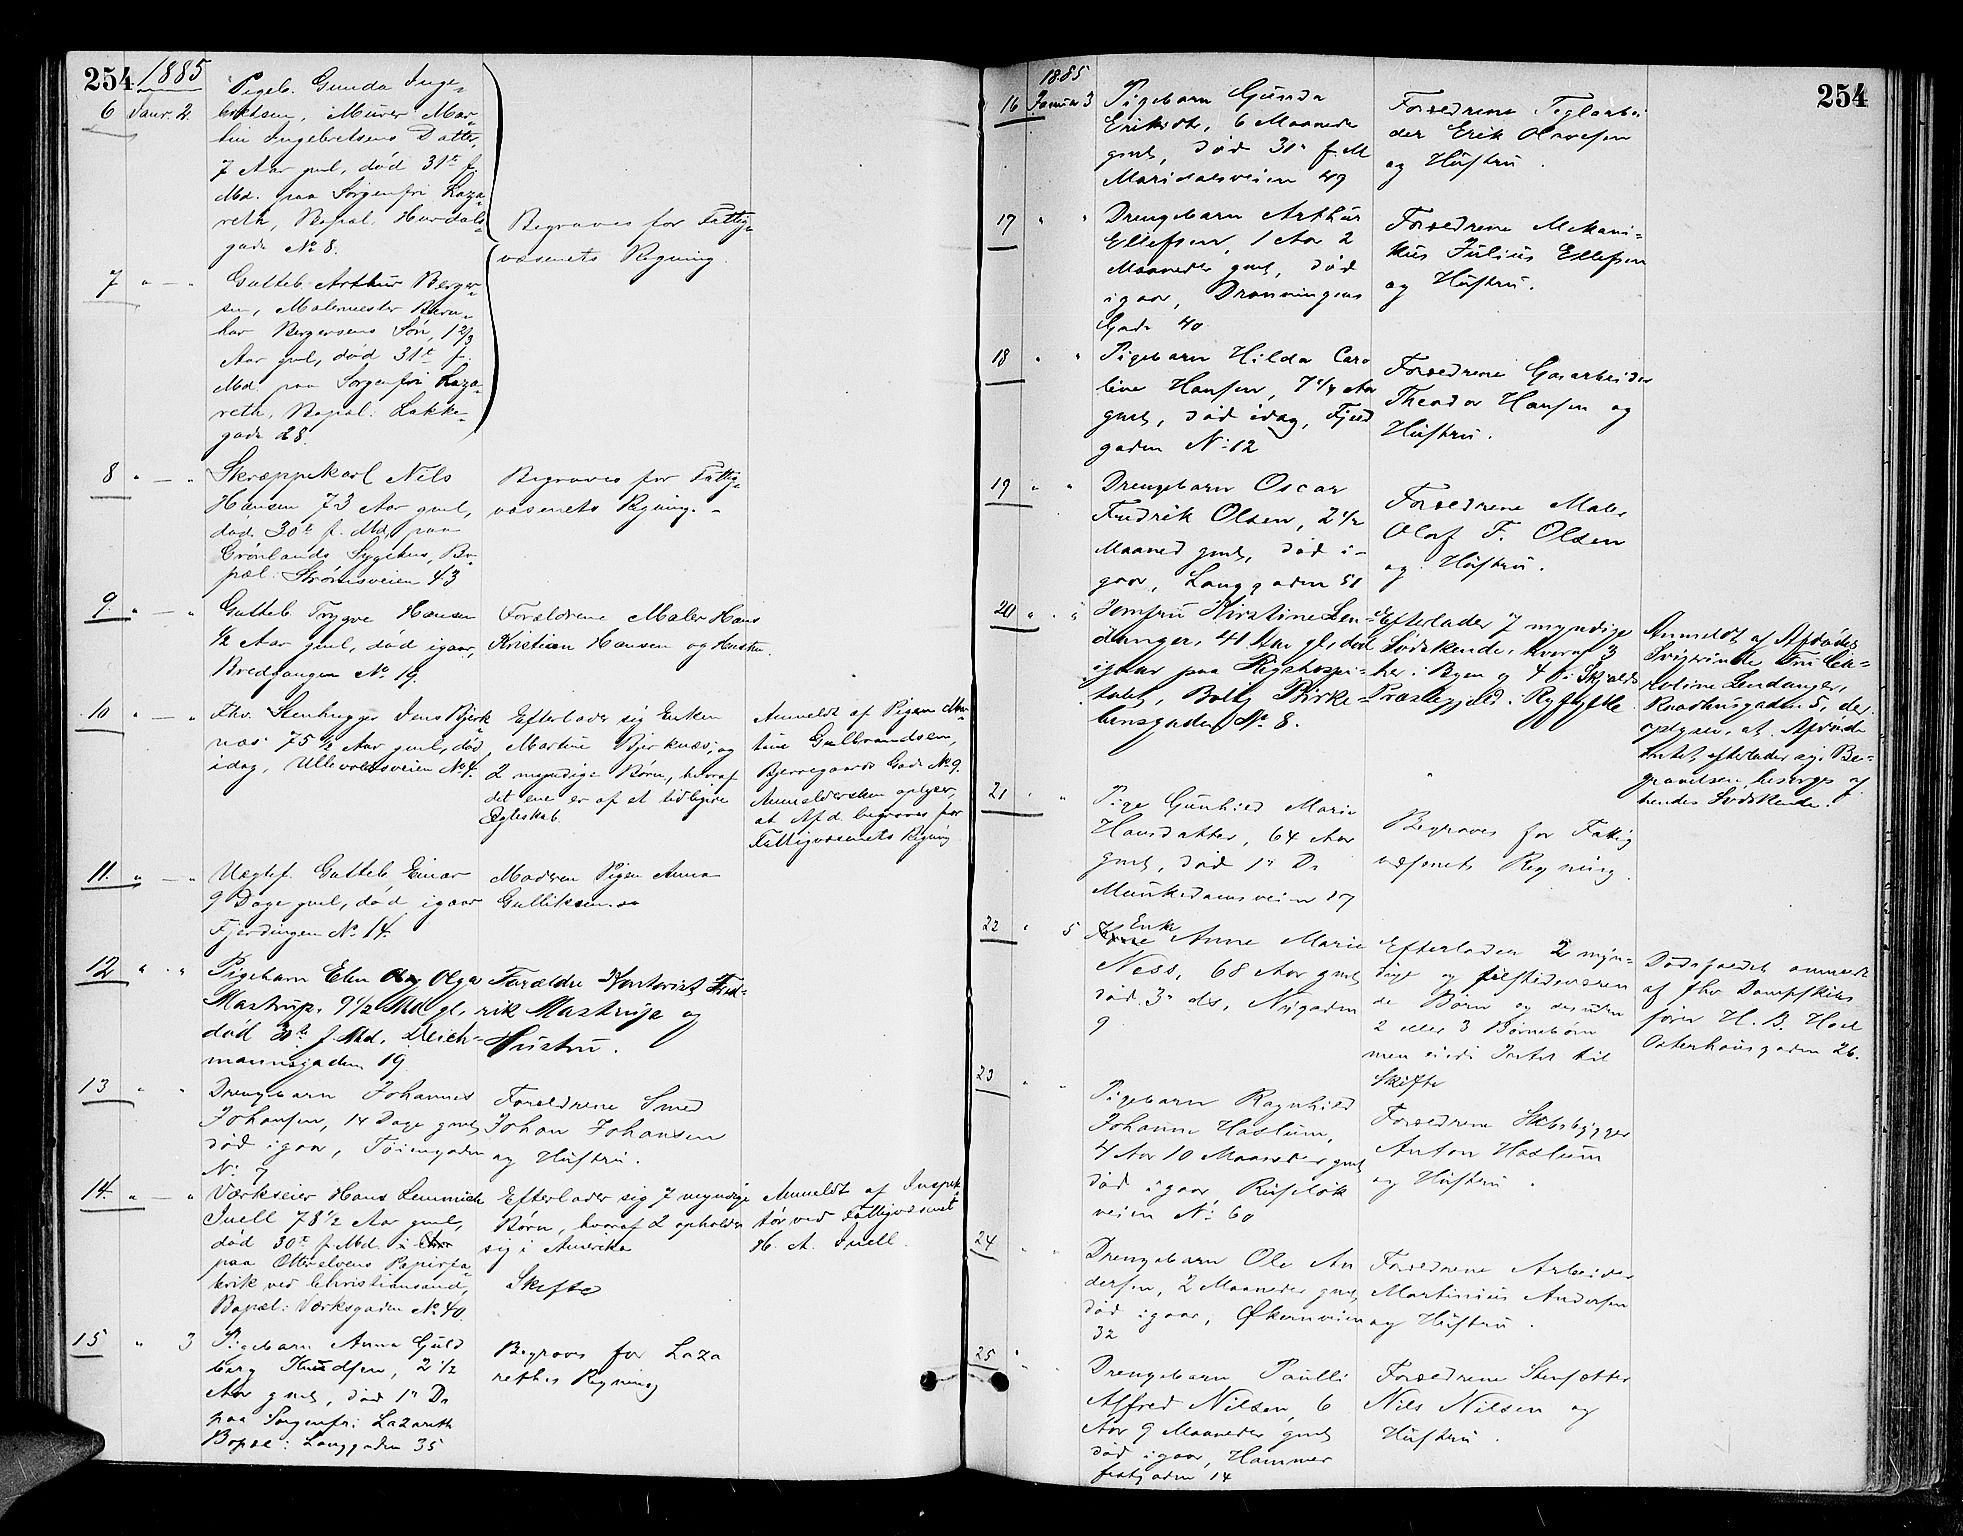 254 1885
6 Janr. 2. Pigeb. Gunda Inge-
bretsen, Murer Mar-
tin Ingebretsens Datter,
7 Aar gml, død 31te f.
Md. paa Sorgenfri Laza-
reth, Bopæl. Hurdals-
gade No 8.
Begraves for Fattig-
væsenets Regning.
7 " — " Gutteb. Arthur Berger-
sen, Malermester Bern-
har Bergersens Søn, 1 2/3
Aar gml, død 31te f.
Md. paa Sorgenfri Laza-
reth, Bopæl: Lakke-
gade 28.
8 " — " Skræppekarl Nils
Hansen 73 Aar gml,
død 30te f. Md, paa
Grønlands Sygehus, Bo-
pæl: Strømsveien 43
Begraves for Fattig-
væsenets Regning. -
9 " — " Gutteb Trygve Hansen
1/2 Aar gml, død igaar,
Bredgangen No 19.
Forældrene Maler Hans
Kristian Hansen og Hustru.
10 " — " Fhv. Stenhugger Jens Bjerk
næs 75 1/2 Aar gml, død
idag, Ullevoldsveien No 4.
Efterlader sig Enken
Martine Bjerknæs, og
2 myndige Børn, hvoraf
det ene er af et tidligere
Ægteskab.
Anmeldt af Pigen Mar-
tine Gulbrandsen,
Bjerregaards Gade No 9.
Anmeldersken oplyser,
at Afd. begraves for
Fattigvæsenets Regning
11. " — " Uægtef. Gutteb Einar
9 Dage gml, død igaar
Fjerdingen No 14.
Modren Pigen Anna
Gulliksen
12 " " Pigebarn Elen Olga
Mastrup, 9 1/2 Md gl,
død 30te f. Md, Deich-
mannsgaden 19.
Forældre Kontorist Fred-
rik Mastrup og
Hustru.
13 " " Drengebarn Johannes
Johansen, 14 Dage gmlt
død igaar, Tøiengaden
No 7
Forældrene Smed
Johan Johansen
og Hustru.
14. " — " Værkseier Hans Lemmich
Juell 78 1/2 Aar gml,
død 30te f. Md.
paa Otterelvens Papirfa-
brik ved Christiansand,
Bopæl: Værksgaden No 40.
Efterlader sig 7 myndige
Børn, hvoraf 2 opholder
sig i Amerika
Skifte
Anmeldt af Inspek-
tør ved Fattigvæsenet
H. A. Juell.
15 " 3 Pigebarn Anna Guld
berg Knudsen, 2 1/2
Aar gmlt, død 1ste Ds
paa Sorgenfri Lazareth
Bopæl: Langgaden 35
Begraves for Laza
rethets Regning
254
1885
16 Januar 3 Pigebarn Gunda
Eriksdtr, 6 Maaneder
gmlt, død 31te f. M
Maridalsveien 49
Forældrene Teglarbei
der Erik Olavesen
og Hustru.
17 " " Drengebarn Arthur
Ellefsen, 1 Aar 2
Maaneder gmlt, død
igaar, Dronningens
Gade 40
Forældrene Mekani-
kus Julius Ellefsen
og Hustru.
18 " " Pigebarn Hilda Caro
line Hansen, 7 1/4 Aar
gmlt, død idag, Fjerd
gaden No 12
Forældrene Gasarbeider
Theodor Hansen og
Hustru.
19 " " Drengebarn Oscar
Fredrik Olsen, 2 1/2
Maaned gmlt, død i-
gaar, Langgaden 51
Forældrene Maler
Olaf F. Olsen
og Hustru.
20 " " Jomfru Kirstine Len-
danger, 41 Aar gl, død
igaar paa Rigshospi-
talet, Bolig Birke-
bensgaden No 8.
Efterlader 7 myndige
Sødskende, hvoraf 3
her i Byen og 4 i Skjolds
Præstegjeld i Ryfylke
Anmeldt af Afdødes
Svigerinde Fru Ca-
roline Lendanger,
Raadhusgaden 5, der
oplyser, at Afdøde
Intet efterlader sig. Be-
gravelsen besørges af
hendes Sødskende.
21 " " Pige Gunhild Marie
Hansdatter, 64 Aar
gmlt, død 1ste Ds
Munkedamsveien 17
Begraves for Fattig
væsenets Regning.
22 " 5 Enke
Anne Marie
Ness, 68 Aar gmlt
død 3die ds, Nygaden
9
Efterlader 2 myn-
dige og tilstedeværen
de Børn og desuden
2 eller 3 Børnebørn
men eiede Intet til
Skifte
Dødsfaldet anmeldt
af fhv Dampskibs
fører H. B. Hoel
Osterhausgaden 26.
23 " " Pigebarn Ragnhild
Johanne Haslum,
4 Aar 10 Maaneder gmlt
død igaar, Ruseløk
veien No 60
Forældrene Skibsbygger
Anton Haslum
og Hustru.
24 " " Drengebarn Ole An
dersen, 2 Maaneder gmlt
død igaar, Økernveien
32
Forældrene Arbeider
Martinius Andersen
og Hustru.
25 " " Drengebarn Paulli
Alfred Nilsen, 6
Aar 9 Maaneder gmlt
død igaar, Hammer
festgaden 14
Forældrene Stensætter
Nils Nilsen og
Hustru.